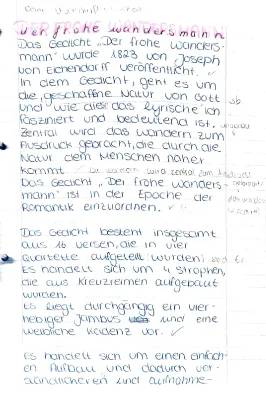 der frohe wandersmann
Das Gedicht „Der frohe wanders-
mann" wurde 1823 von Joseph
von Eichendorff veröffentlicht.
In dem Gedicht, geht es um
die geschaffene Natur von Gott
und wie dies das lyrische ich
fasziniert und bedeutend ist.
Zentral wird das wandern zum
Ausdruck gebracht, die durch die
Natur dem Menschen näher
kommt.
Das Gedicht „Der frohe wanders-
mann" ist in der Epoche der
Romantik einzuordnen.
Das Gedicht besteht insgesamt
aus 16 versen, die in vier
Quartette aufgeteilt wurden.
Es handelt sich um 4 strophen,
die aus Kreuzreimen aufgebaut
wurden.
Es liegt durchgängig ein vier-
hebiger Jambus und eine
weibliche Kadenz vor.
Es handelt sich um einen einfach-
en Aufbau und dadurch ver-
ständlicheren und aufnahme-